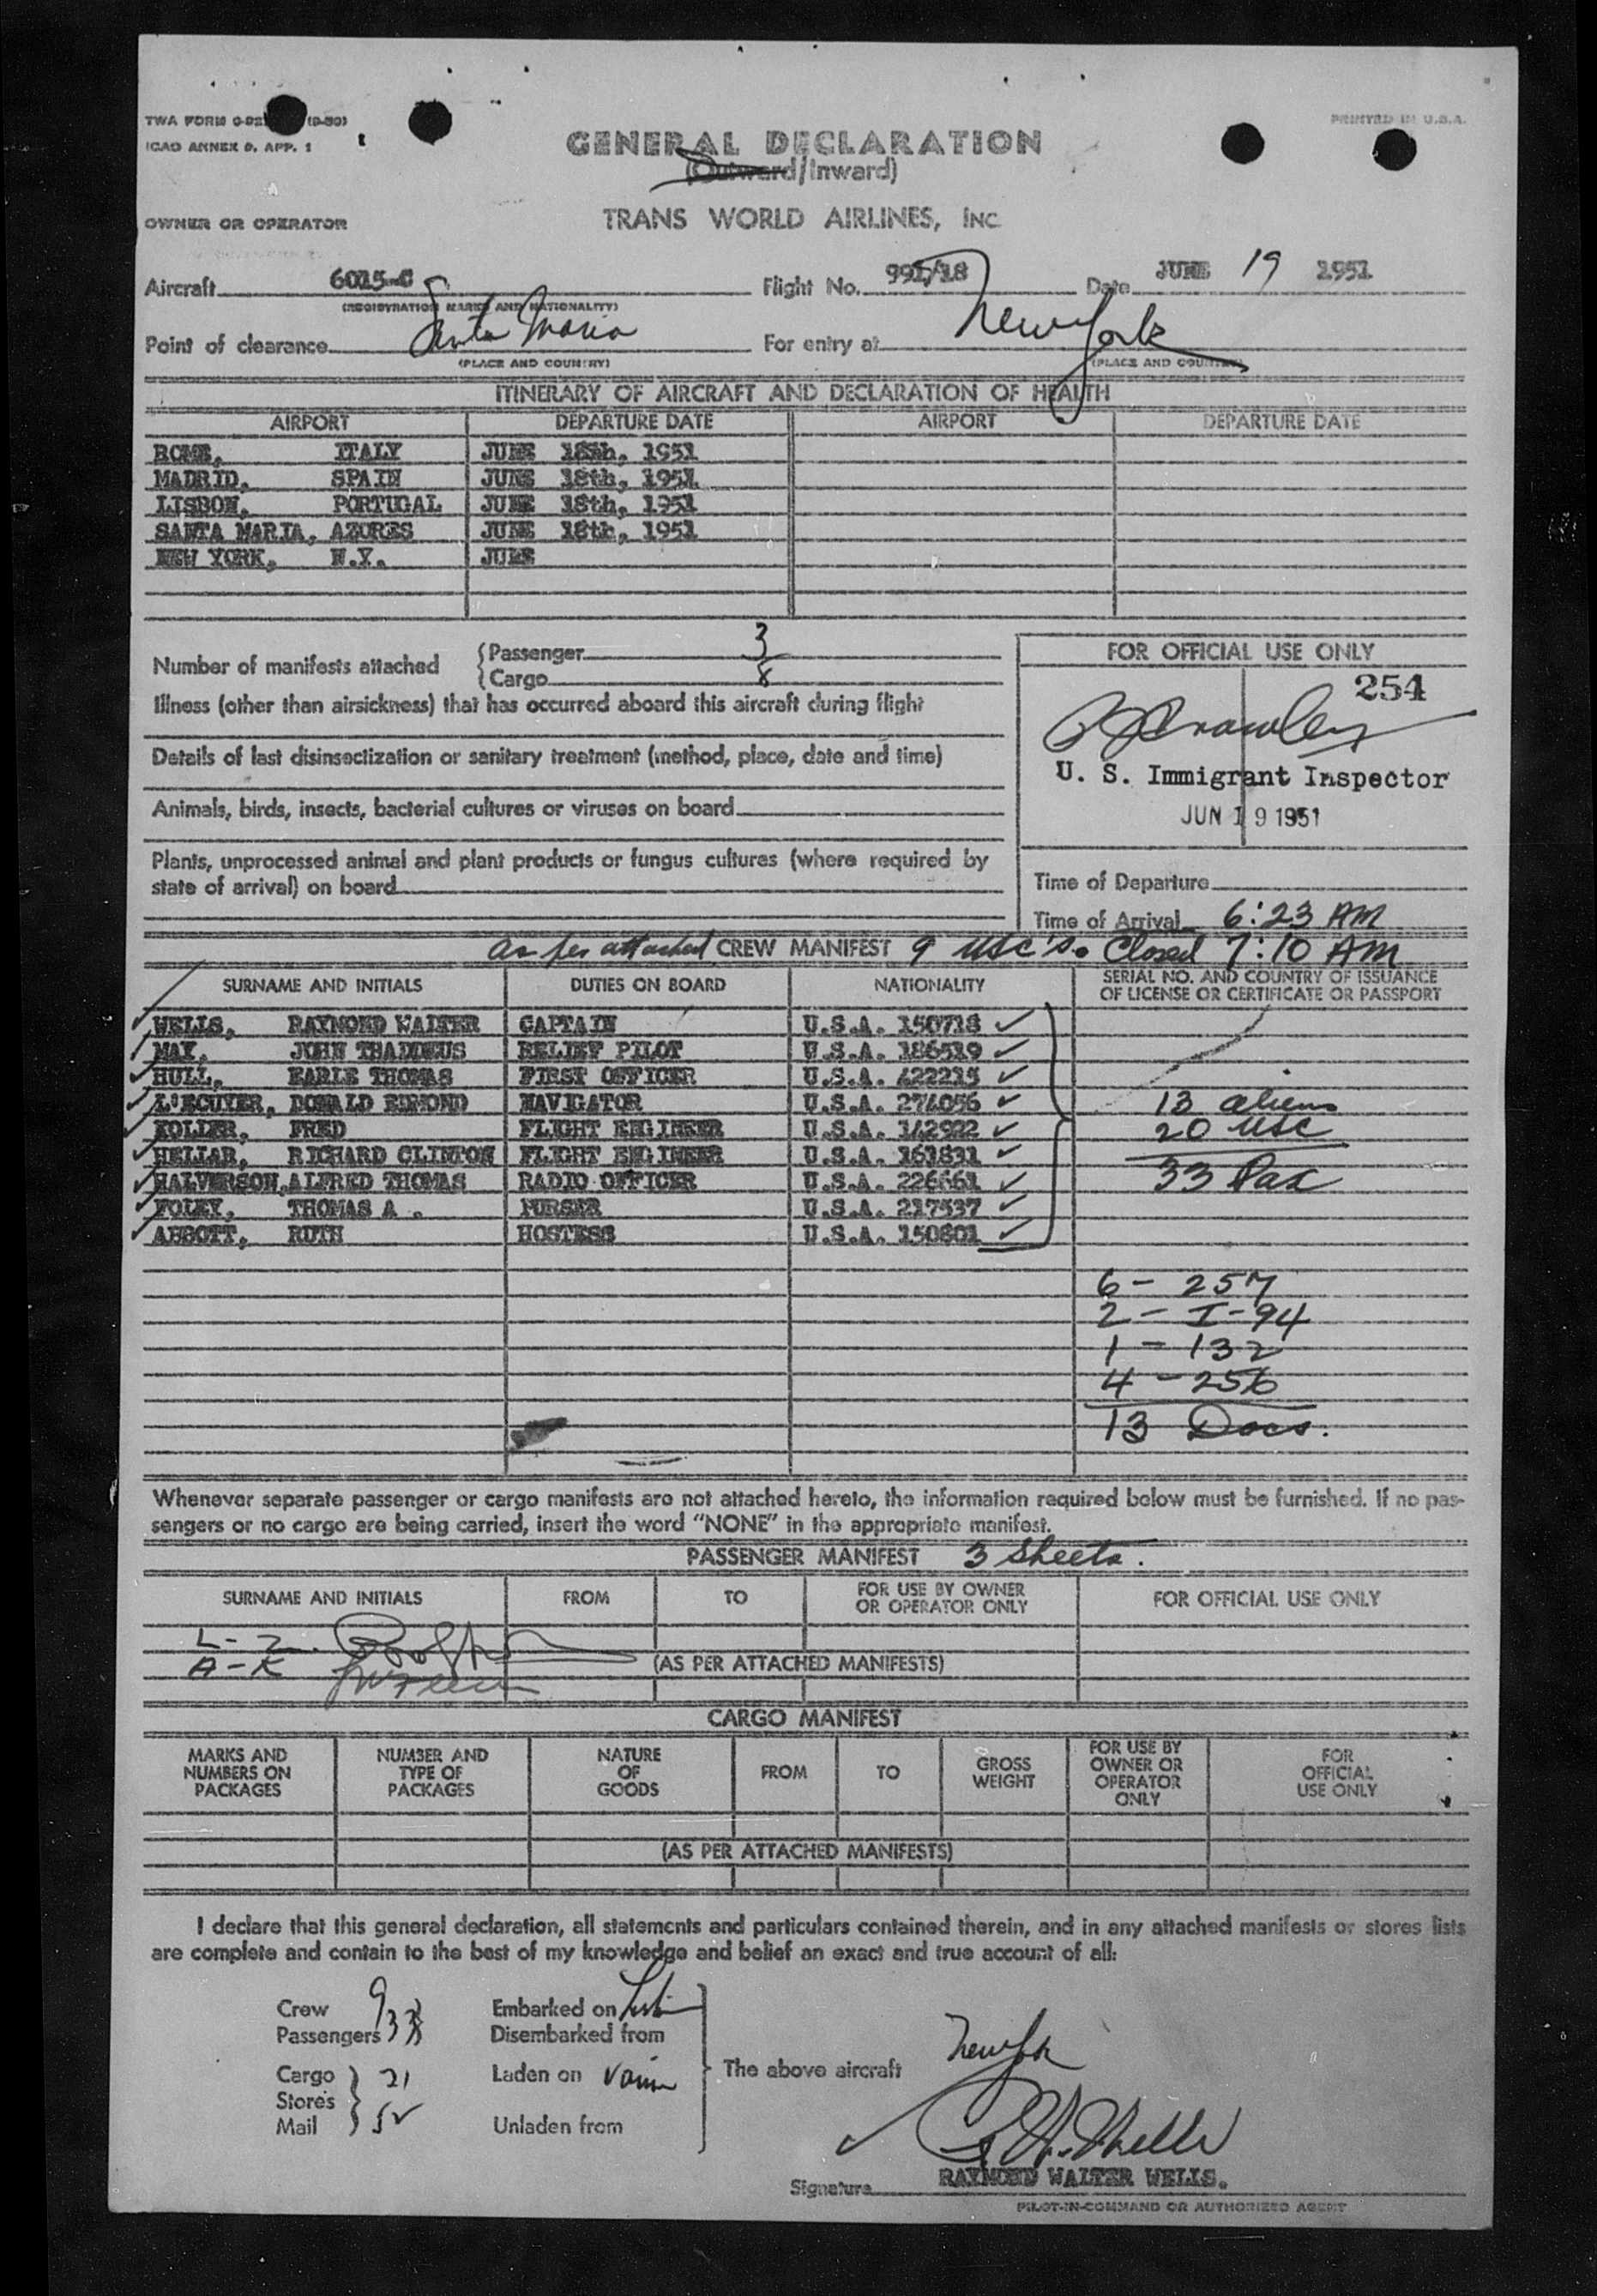 ICAO ANNEX 9, APP. 1
PRINTED IN U.S.A.
GENERAL DECLARATION
(Outward/Inward)
OWNER OR OPERATOR TRANS WORLD AIRLINES, INC
Aircraft 6015-C Flight No. 995/18 Date JUNE 19 1951
(REGISTRATION MARKS AND NATIONALITY)
Point of clearance Santa Maria For entry at New York
(PLACE AND COUNTRY) (PLACE AND COUNTRY)
ITINERARY OF AIRCRAFT AND DECLARATION OF HEALTH
AIRPORT DEPARTURE DATE AIRPORT DEPARTURE DATE
ROME, ITALY JUNE 18th, 1951
MADRID, SPAIN JUNE 18th, 1951
LISBON, PORTUGAL JUNE 18th, 1951
SANTA MARIA, AZORES JUNE 18th, 1951
NEW YORK, N.Y. JUNE
Number of manifests attached {Passenger 3
{Cargo 8
Illness (other than airsickness) that has occurred aboard this aircraft during flight
Details of last disinsectization or sanitary treatment (method, place, date and time)
Animals, birds, insects, bacterial cultures or viruses on board
Plants, unprocessed animal and plant products or fungus cultures (where required by
state of arrival) on board
FOR OFFICIAL USE ONLY
254
Crowley
U. S. Immigrant Inspector
JUN 19 1951
Time of Departure
Time of Arrival 6:23 AM
as per attached CREW MANIFEST 9 USC's. Closed 7:10 AM
SURNAME AND INITIALS DUTIES ON BOARD NATIONALITY SERIAL NO. AND COUNTRY OF ISSUANCE
OF LICENSE OR CERTIFICATE OR PASSPORT
WELLS, RAYMOND WALTER CAPTAIN U.S.A. 150718
MAY, JOHN THADDEUS RELIEF PILOT U.S.A. 186519
HULL, EARLE THOMAS FIRST OFFICER U.S.A. 422215
L'ECUYER, DONALD EDMOND NAVIGATOR U.S.A. 274056 13 aliens
KOLLER, FRED FLIGHT ENGINEER U.S.A. 142922 20 USC
HELLAR, RICHARD CLINTON FLIGHT ENGINEER U.S.A. 161831
HALVERSON, ALFRED THOMAS RADIO OFFICER U.S.A. 226661 33 Pax
FOLEY, THOMAS A . PURSER U.S.A. 217537
ABBOTT, RUTH HOSTESS U.S.A. 150801
6 - 257
2 - I-94
1 - 132
4 - 256
13 Docs.
Whenever separate passenger or cargo manifests are not attached hereto, the information required below must be furnished. If no pas-
sengers or no cargo are being carried, insert the word "NONE" in the appropriate manifest.
PASSENGER MANIFEST 3 Sheets.
SURNAME AND INITIALS FROM TO FOR USE BY OWNER
OR OPERATOR ONLY FOR OFFICIAL USE ONLY
L-Z.
A-K
(AS PER ATTACHED MANIFESTS)
CARGO MANIFEST
MARKS AND
NUMBERS ON
PACKAGES
NUMBER AND
TYPE OF
PACKAGES
NATURE
OF
GOODS
FROM
TO
GROSS
WEIGHT
FOR USE BY
OWNER OR
OPERATOR
ONLY
FOR
OFFICIAL
USE ONLY
(AS PER ATTACHED MANIFESTS)
I declare that this general declaration, all statements and particulars contained therein, and in any attached manifests or stores lists
are complete and contain to the best of my knowledge and belief an exact and true account of all:
Crew 9 Embarked on
Passengers 33 Disembarked from
Cargo 21 Laden on The above aircraft New York
Stores
Mail Unladen from
R W Wells
Signature RAYMOND WALTER WELLS.
PILOT-IN-COMMAND OR AUTHORIZED AGENT